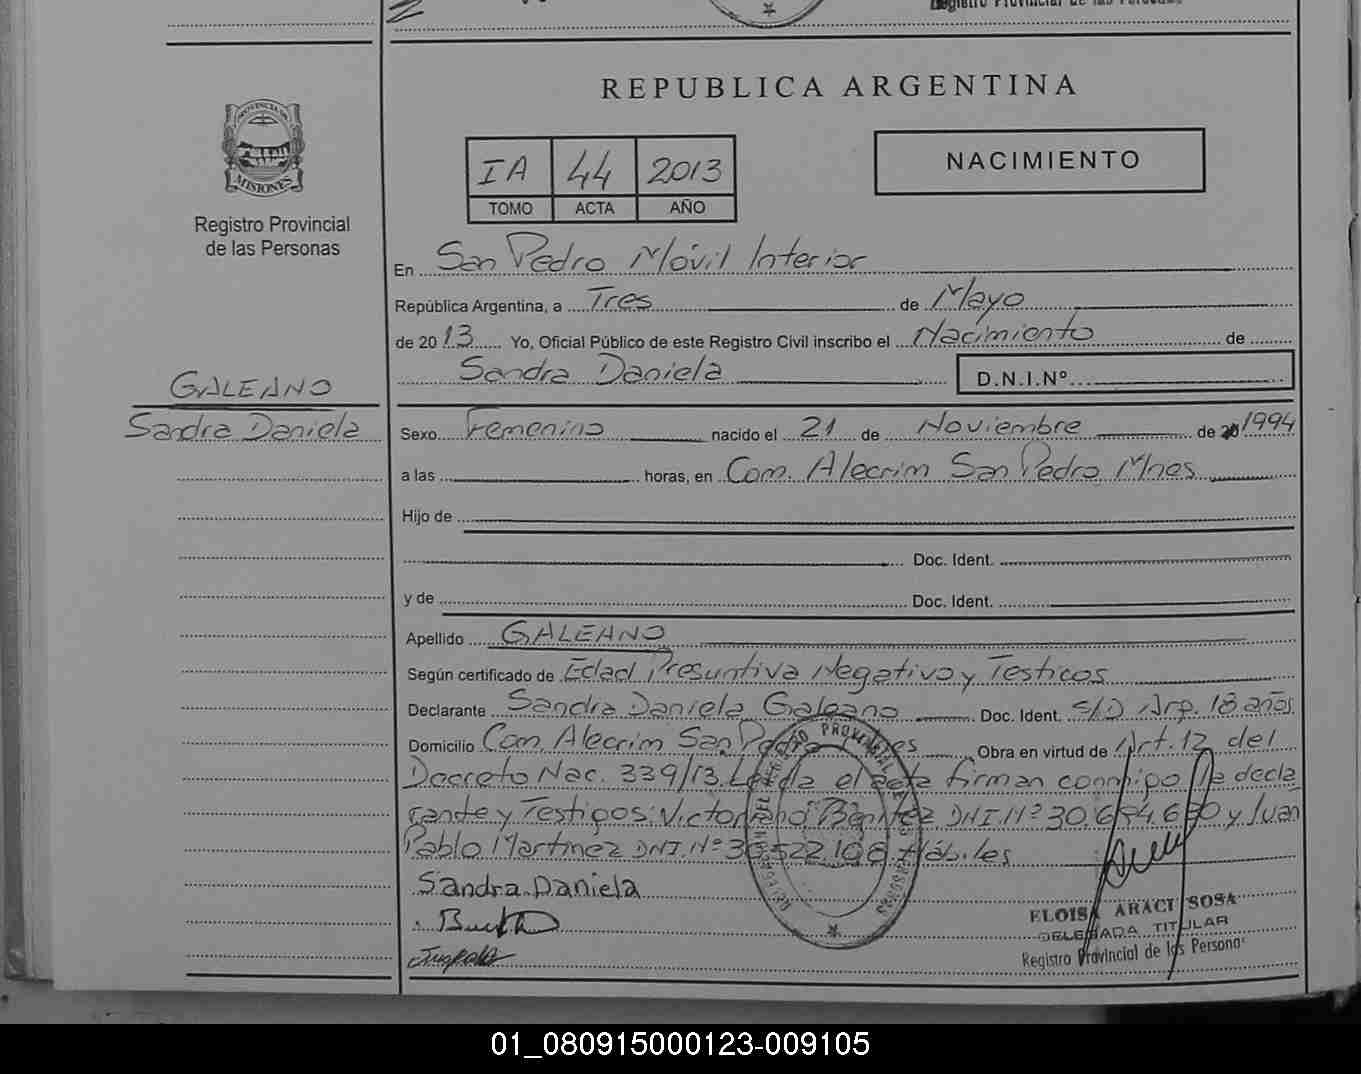 Registro Provincial de las Personas
REPUBLICA ARGENTINA
PROVINCIA DE
MISIONES
Registro Provincial
de las Personas
IA 44 2013
TOMO ACTA AÑO
NACIMIENTO
En San Pedro Móvil Interior
República Argentina, a Tres de Mayo
de 2013 Yo, Oficial Público de este Registro Civil inscribo el Nacimiento de
Sandra Daniela D.N.I.Nº
GALEANO
Sandra Daniela
Sexo Femenino nacido el 21 de Noviembre de 1994
a las horas, en Com. Alecrim San Pedro Mnes
Hijo de
Doc. Ident.
y de Doc. Ident.
Apellido GALEANO
Según certificado de Edad Presuntiva Negativo y Testigos
Declarante Sandra Daniela Galeano Doc. Ident. S/D Arg. 18 años
Domicilio Com. Alecrim San Pedro Obra en virtud de Art. 12 del
Decreto Nac. 339/13. Leída el acta firman conmigo la decla
rante y Testigos: Victoriano Benitez DNI.Nº 30. y Juan
Pablo Martinez DNI.Nº Hábiles
Sandra Daniela
ELOISA ARACI SOSA
DELEGADA TITULAR
Registro Provincial de las Personas
01_080915000123-009105